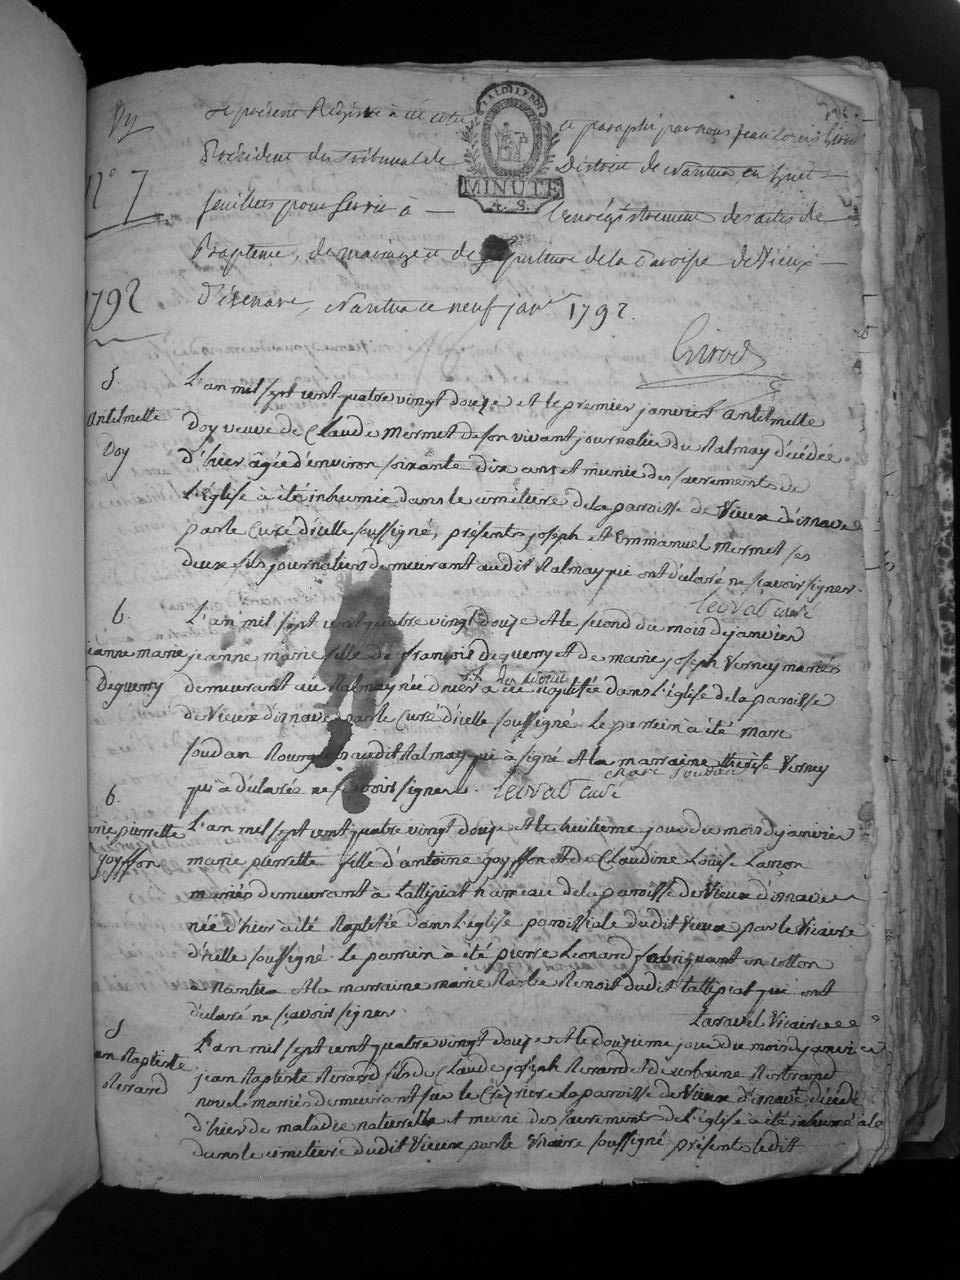 Le présent Registre à été cotté et paraphé par nous jean Louis Girod
Président du tribunal de District de Nantua, en huit
LA LOI LE ROI
MINUTE
4. S.
N° 7
feuillets pour servir à l'enrégistrement des actes de
Baptême, de mariage et de sépulture de la Paroisse de Vieux
1792
D'izenave, Nantua ce neuf janv. 1792.
Girod
S.
Antelmette
Doy
L'an mil sept cent quatre vingt douze et le premier janvier antelmette
Doy veuve de Claude Mermet de son vivant journalier du Balmay décédée
d'hier âgée d'environ soixante dix ans et munie des sacrements de
L'église à été inhumée dans le cimetière de la paroisse de Vieux d'isnave
par le Curé d'icelle soussigné, présents joseph et Emmanuel Mermet ses
deux fils journaliers demeurant audit Balmay qui ont déclaré ne sçavoir signer.
curé
b.
jeanne marie
Deguerry
L'an mil sept cent quatre vingt douze et le second du mois de janvier
jeanne marie fille de françois Deguerry et de marie joseph Verney mariés
demeurant au Balmay née d'hier à été baptisée dans L'église de la paroisse
de Vieux d'isnave par le Curé d'icelle soussigné. le parrein a été marc
soudan audit Balmay qui à signé et la marraine thérèse Verney
marc soudan
qui à déclarée ne sçavoir signer. curé
b.
marie pierrette
goyffon
L'an mil sept cent quatre vingt douze et le huitieme jour du mois de janvier
marie pierrette fille d'antoine goyffon et de Claudine Louise
mariés demeurant à tallipiat hameau de la paroisse de Vieux d'isnave
née d'hier à été Baptisée dans L'église paroissiale dudit Vieux par le Vicaire
d'icelle soussigné. le parrein à été pierre Léonard fabriquant en cotton
à Nantua et la marraine marie Benoit dudit tallipiat qui ont
déclaré ne sçavoir signer. Laravel Vicaire
S
jean Baptiste
Berard
L'an mil sept cent quatre vingt douze et le douzieme jour du mois de janvier
jean Baptiste Berard fils de Claude joseph Berard et de urbaine Bertrand
novel mariés demeurant sur la paroisse de Vieux d'isnave décédé
d'hier de maladie naturelle et muni des sacrements de L'église à été inhumé
dans le cimetiere dudit Vieux par le Vicaire soussigné présents ledit